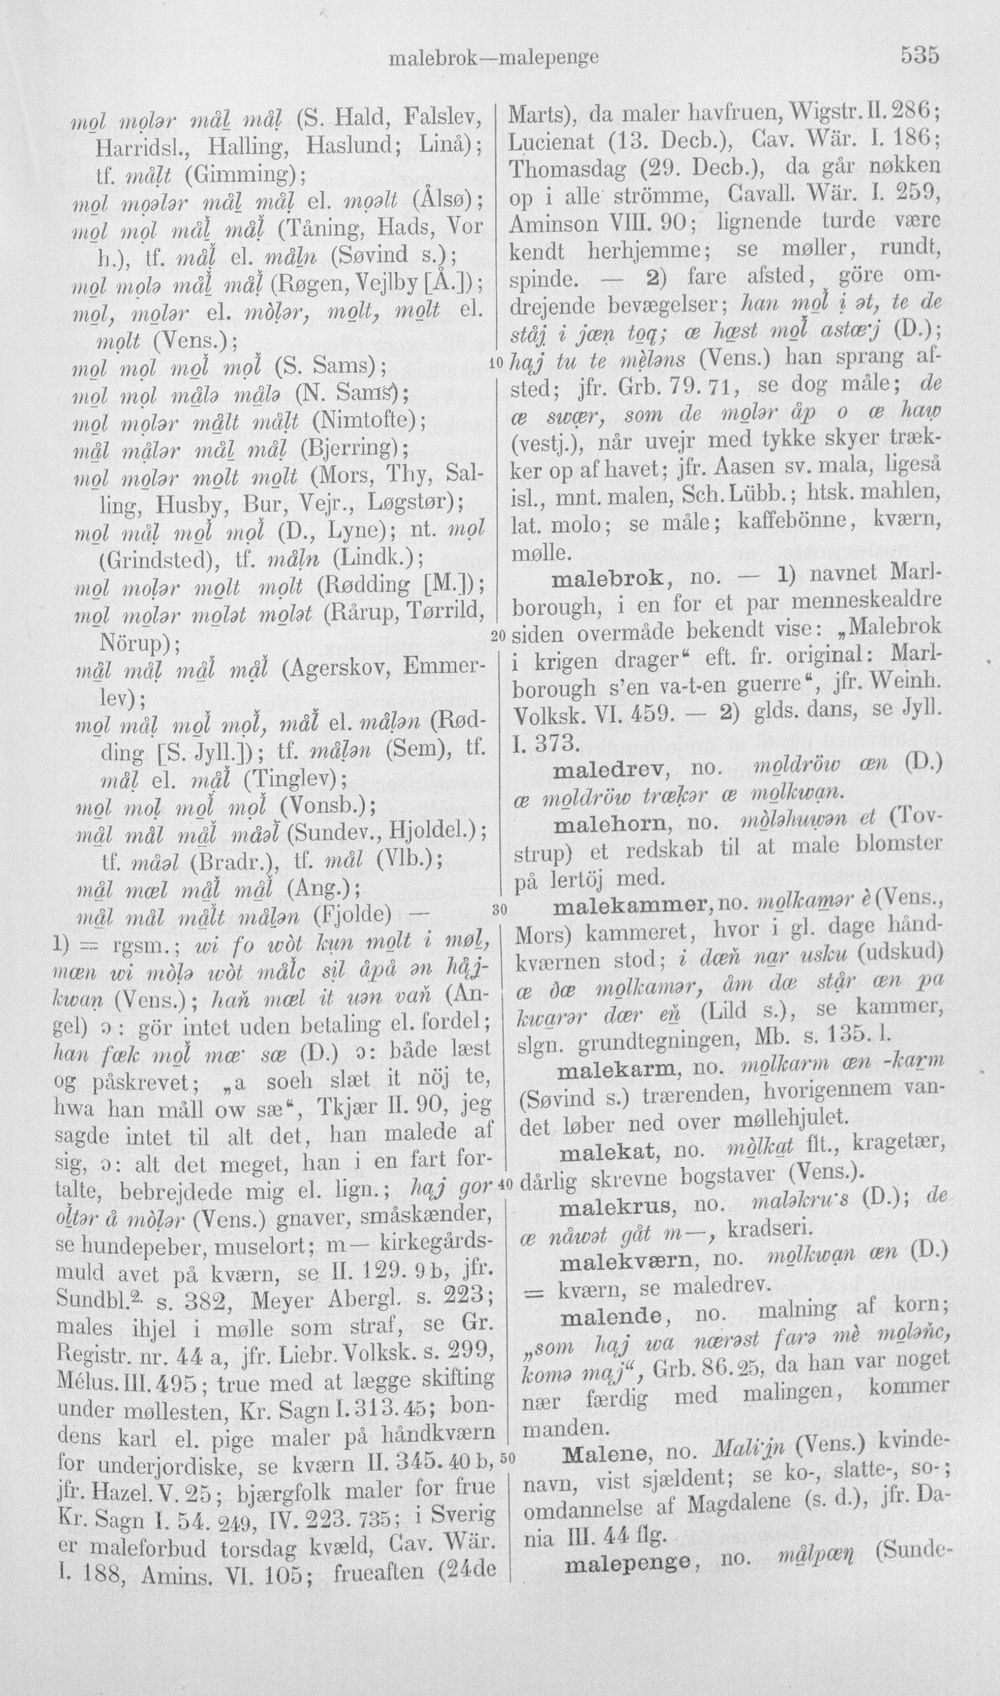 malebrok—malepenge 535
mo̱l mo̱lər må̱l må̱l (S. Hald, Falslev,
Harridsl., Halling, Haslund; Linå);
tf. målt (Gimming);
mo̱l moələr må̱l må̱l el. moəlt (Ålsø);
mo̱l mo̱l må̱l må̱l (Tåning, Hads, Vor
h.), tf. må̱l el. må̱ln (Søvind s.);
mo̱l mo̱lə må̱l må̱l (Røgen, Vejlby [Å.]);
mo̱l, mo̱lər el. mòlər, mo̱lt, mo̱lt el.
mo̱lt (Vens.);
mo̱l mo̱l mo̱l mo̱l (S. Sams);
mo̱l mo̱l må̱lə må̱lə (N. Sams);
mo̱l mo̱lər må̱lt må̱lt (Nimtofte);
må̱l må̱lər må̱l må̱l (Bjerring);
mo̱l mo̱lər mo̱lt mo̱lt (Mors, Thy, Sal-
ling, Husby, Bur, Vejr., Løgstør);
mo̱l må̱l mo̱l mo̱l (D., Lyne); nt. mo̱l
(Grindsted), tf. må̱ln (Lindk.);
mo̱l mo̱lər mo̱lt mo̱lt (Rødding [M.]);
mo̱l mo̱lər mo̱lət mo̱lət (Rårup, Tørrild,
Nörup);
må̱l må̱l må̱l må̱l (Agerskov, Emmer-
lev);
mo̱l må̱l mo̱l mo̱l, må̱l el. må̱lən (Rød-
ding [S. Jyll.]); tf. må̱lən (Sem), tf.
må̱l el. må̱l (Tinglev);
mo̱l mo̱l mo̱l mo̱l (Vonsb.);
må̱l mål må̱l måəl (Sundev., Hjoldel.);
tf. måəl (Bradr.), tf. mål (Vlb.);
må̱l mæl må̱l må̱l (Ang.);
må̱l mål må̱lt må̱lən (Fjolde) —
1) = rgsm.; wi fo wòt kun mo̱lt i møl,
mæn wi mòlə wòt målc sil åpå ən håj-
kwan (Vens.); hań mæl it uən vań (An-
gel) ɔ: gör intet uden betaling el. fordel;
han fæk mo̱l mæ· sæ (D.) ɔ: både læst
og påskrevet; „a soeh slæt it nöj te,
hwa han måll ow sæ“, Tkjær II. 90, jeg
sagde intet til alt det, han malede af
sig, ɔ: alt det meget, han i en fart for-
talte, bebrejdede mig el. lign.; haj gor
oltər å mòlər (Vens.) gnaver, småskænder,
se hundepeber, muselort; m— kirkegårds-
muld avet på kværn, se II. 129. 9 b, jfr.
Sundbl.2. s. 382, Meyer Abergl. s. 223;
males ihjel i mølle som straf, se Gr.
Registr. nr. 44 a, jfr. Liebr. Volksk. s. 299,
Mélus. III. 495; true med at lægge skifting
under møllesten, Kr. Sagn I. 313. 45; bon-
dens karl el. pige maler på håndkværn
for underjordiske, se kværn II. 345. 40 b,
jfr. Hazel. V. 25; bjærgfolk maler for frue
Kr. Sagn I. 54. 249, IV. 223. 735; i Sverig
er maleforbud torsdag kvæld, Cav. Wär.
I. 188, Amins. VI. 105; frueaften (24de
Marts), da maler havfruen, Wigstr. II. 286;
Lucienat (13. Decb.), Cav. Wär. I. 186;
Thomasdag (29. Decb.), da går nøkken
op i alle strömme, Cavall. Wär. I. 259,
Aminson VIII. 90; lignende turde være
kendt herhjemme; se møller, rundt,
spinde. — 2) fare afsted, göre om-
drejende bevægelser; han mo̱l i ət, te de
ståj i jæn toq; æ hæst mo̱l astæ·j (D.);
10 haj tu te mèləns (Vens.) han sprang af-
sted; jfr. Grb. 79. 71, se dog måle; de
æ swær, som de mo̱lər åp o æ haw
(vestj.), når uvejr med tykke skyer træk-
ker op af havet; jfr. Aasen sv. mala, ligeså
isl., mnt. malen, Sch. Lübb.; htsk. mahlen,
lat. molo; se måle; kaffebönne, kværn,
mølle.
malebrok, no. — 1) navnet Marl-
borough, i en for et par menneskealdre
20 siden overmåde bekendt vise: „Malebrok
i krigen drager“ eft. fr. original: Marl-
borough s'en va-t-en guerre“, jfr. Weinh.
Volksk. VI. 459. — 2) glds. dans, se Jyll.
I. 373.
maledrev, no. mo̱ldröw æn (D.)
æ mo̱ldröw trækər æ mo̱lkwan.
malehorn, no. mòləhuwən et (Tov-
strup) et redskab til at male blomster
på lertöj med.
30 malekammer, no. mo̱lkamər è (Vens.,
Mors) kammeret, hvor i gl. dage hånd-
kværnen stod; i dæń nar usku (udskud)
æ ðæ mo̱lkamər, åm dæ står æn pa
kwarər dær eń (Lild s.), se kammer,
slgn. grundtegningen, Mb. s. 135. l.
malekarm, no. mo̱lkarm æn -karm
(Søvind s.) trærenden, hvorigennem van-
det løber ned over møllehjulet.
malekat, no. mòlkat flt., kragetær,
40 dårlig skrevne bogstaver (Vens.).
malekrus, no. maləkru·s (D.); de
æ nåwət gåt m—, kradseri.
malekværn, no. mo̱lkwan æn (D.)
= kværn, se maledrev.
malende, no. malning af korn;
„som haj wa nærəst farə mè mo̱lənc,
komə maj“, Grb. 86. 25, da han var noget
nær færdig med malingen, kommer
manden.
50 Malene, no. Mali·jn (Vens.) kvinde-
navn, vist sjældent; se ko-, slatte-, so-;
omdannelse af Magdalene (s. d.), jfr. Da-
nia III. 44 flg.
malepenge, no. må̱lpæŋ (Sunde-